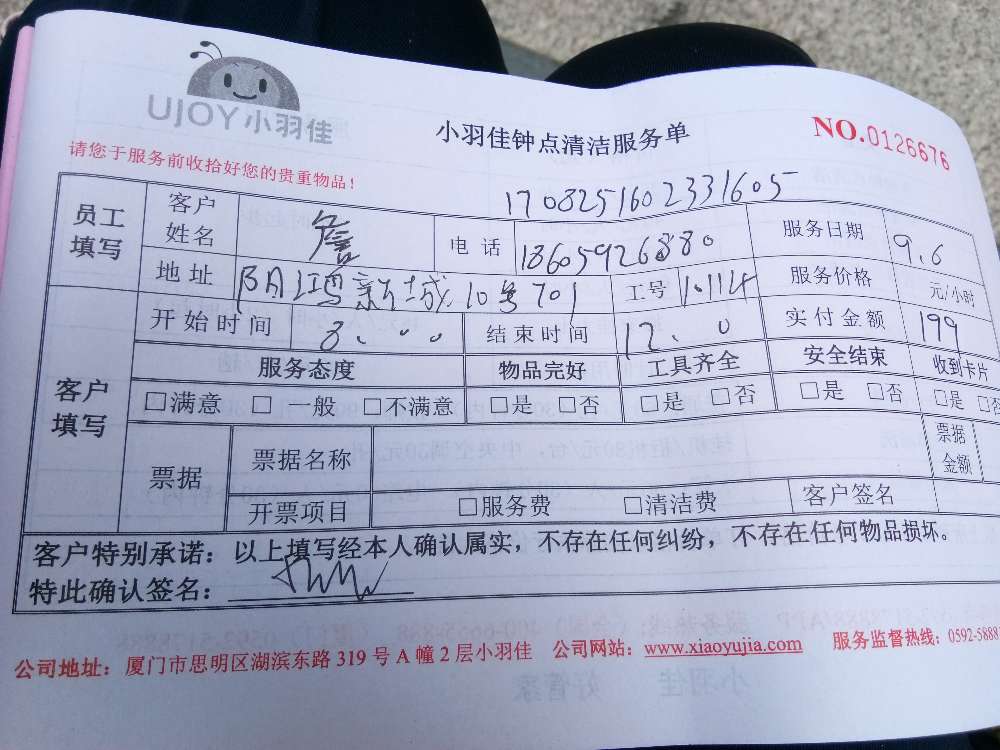 UJOY小羽佳
小羽佳钟点清洁服务单
NO.0126676
请您于服务前收拾好您的贵重物品!
1708251602331605
员工填写 客户姓名 詹 电话 18605926880 服务日期 9.6
地址 阳鸿新城10号701 工号 服务价格 元/小时
开始时间 8.00 结束时间 12.0 实付金额 199
客户填写 服务态度 物品完好 工具齐全 安全结束 收到卡片
□满意 □一般 □不满意 □是 □否 □是 □否 □是 □否 □是 □否
票据 票据名称 票据金额
开票项目 □服务费 □清洁费 客户签名
客户特别承诺:以上填写经本人确认属实,不存在任何纠纷,不存在任何物品损坏。
特此确认签名:
公司地址:厦门市思明区湖滨东路 319 号 A 幢 2 层小羽佳 公司网站:www.xiaoyujia.com 服务监督热线:0592-5888